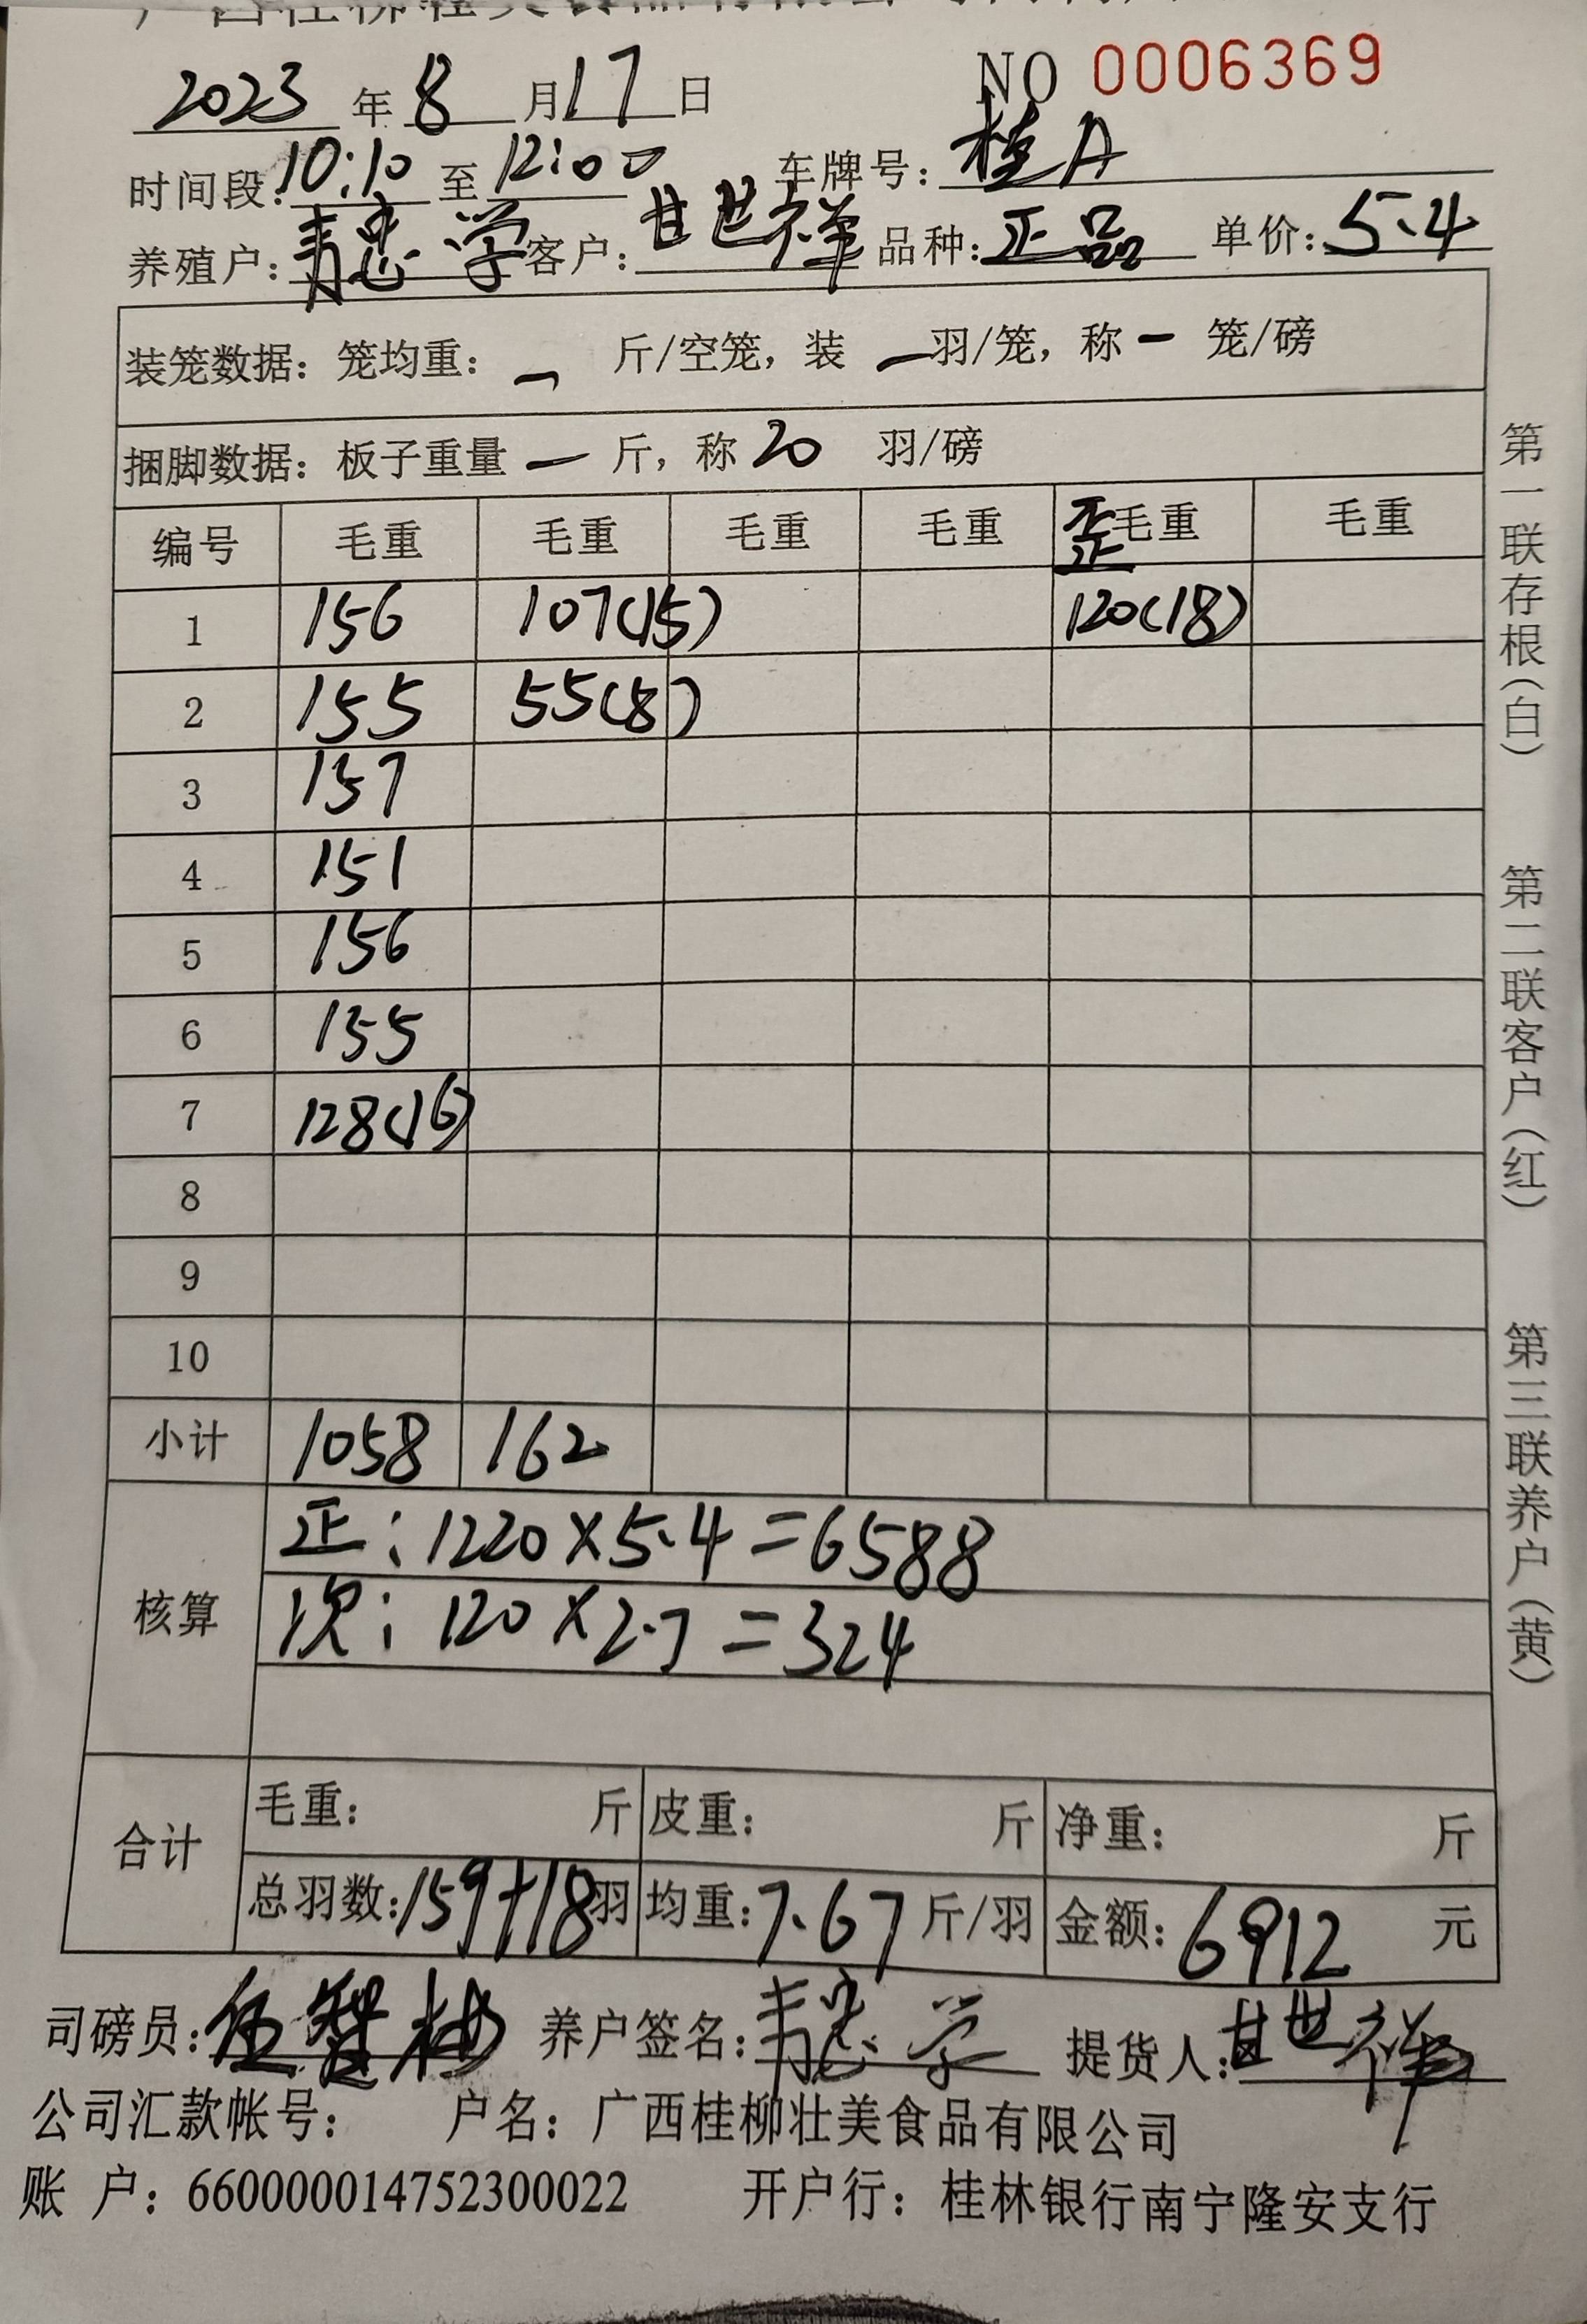 2023年8月17日 NO 0006369
时间段:10:10至12:00 车牌号:桂A
养殖户:韦忠学 客户:甘世祥 品种:正品 单价:5.4
装笼数据:笼均重: — 斤/空笼,装 — 羽/笼,称 — 笼/磅
捆脚数据:板子重量 — 斤,称 20 羽/磅
编号 毛重 毛重 毛重 毛重 歪毛重 毛重
1 156 107(15) 120(18)
2 155 55(8)
3 157
4 151
5 156
6 155
7 128(16)
8
9
10
小计 1058 162
核算
正:1220×5.4=6588
次:120×2.7=324
合计
毛重: 斤 皮重: 斤 净重: 斤
总羽数:159+18羽 均重:7.67斤/羽 金额:6912元
司磅员: 养户签名:韦忠学 提货人:甘世祥
公司汇款帐号: 户名:广西桂柳壮美食品有限公司
账 户:660000014752300022 开户行:桂林银行南宁隆安支行
第一联存根(白) 第二联客户(红) 第三联养户(黄)